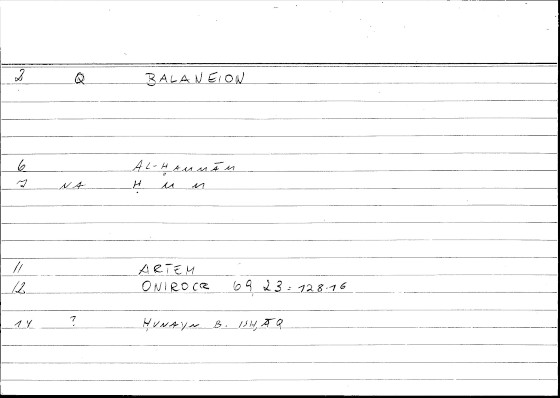 2 Q BALANEION
6 AL-ḤAMMĀM
7 NA Ḥ M M
11 ARTEM
12 ONIROCR 69, 23 = 128.16
14 ? ḤUNAYN B. ISḤĀQ